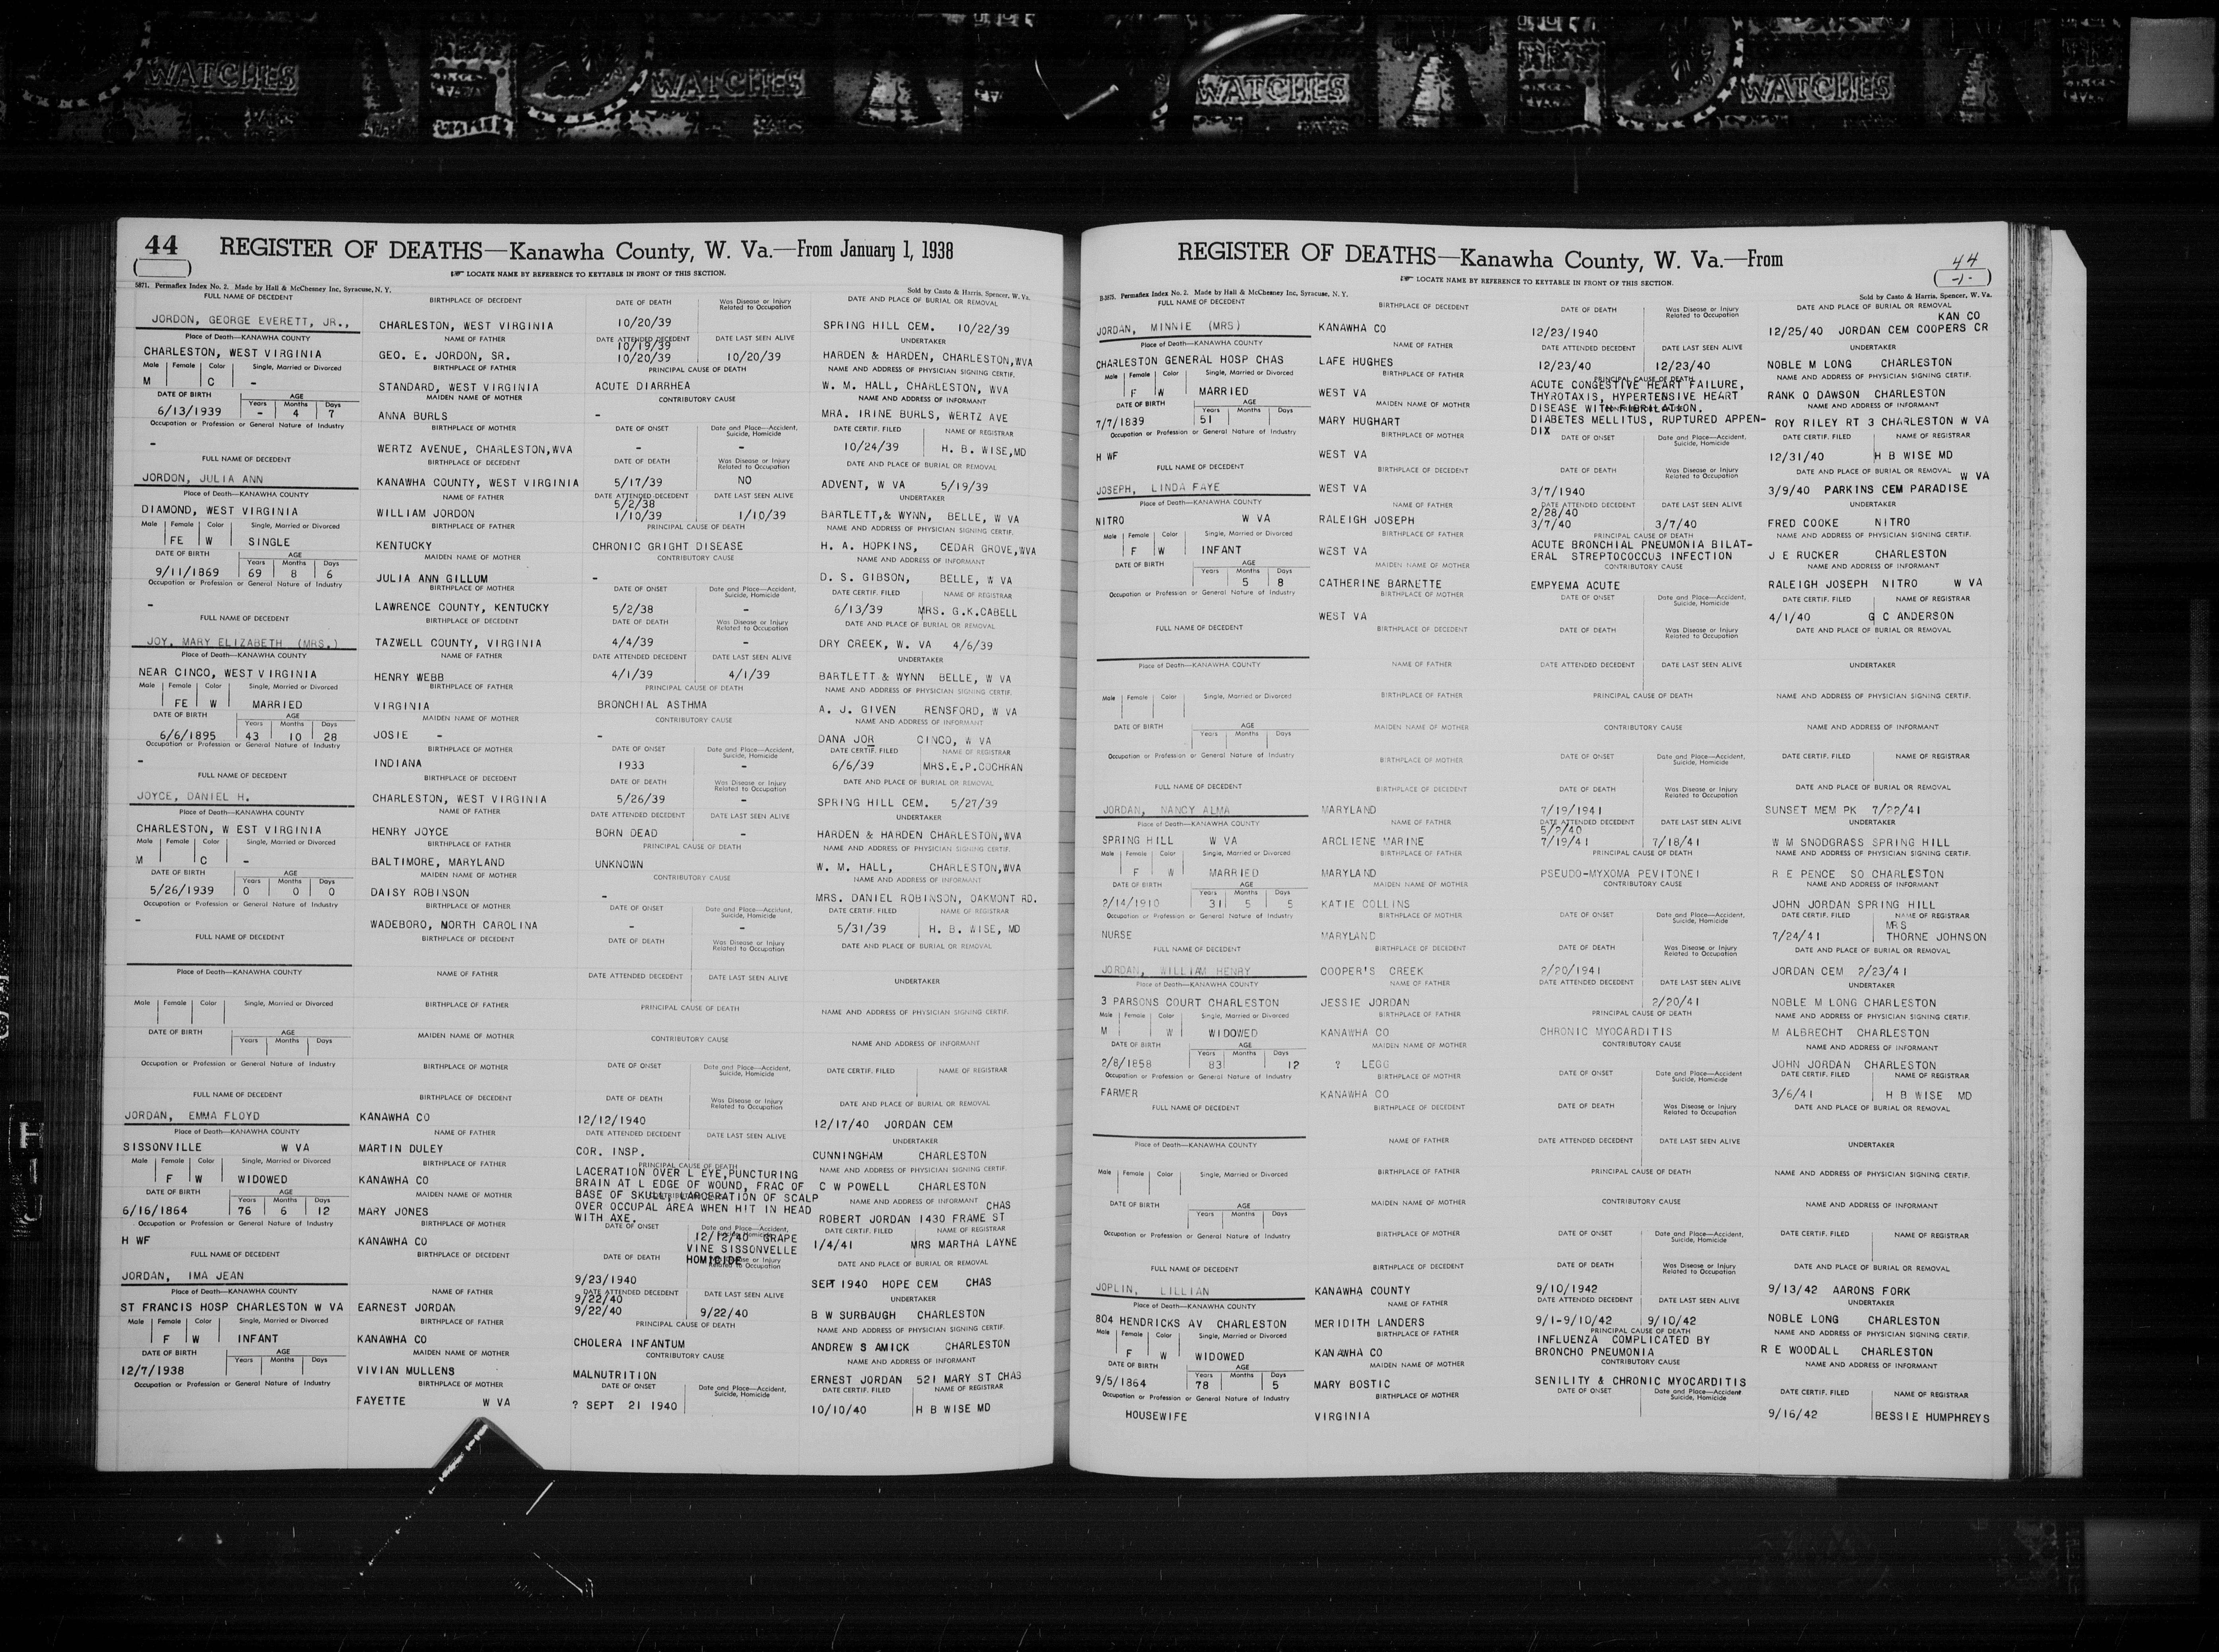 WATCHES WATCHES WATCHES WATCHES
44 REGISTER OF DEATHS—Kanawha County, W. Va.—From January 1, 1938
☞ LOCATE NAME BY REFERENCE TO KEYTABLE IN FRONT OF THIS SECTION.
5871. Permaflex Index No. 2. Made by Hall & McChesney Inc, Syracuse, N. Y. Sold by Casto & Harris, Spencer, W. Va.
FULL NAME OF DECEDENT BIRTHPLACE OF DECEDENT DATE OF DEATH Was Disease or Injury Related to Occupation DATE AND PLACE OF BURIAL OR REMOVAL
JORDON, GEORGE EVERETT, JR., CHARLESTON, WEST VIRGINIA 10/20/39 SPRING HILL CEM. 10/22/39
Place of Death—KANAWHA COUNTY NAME OF FATHER DATE ATTENDED DECEDENT DATE LAST SEEN ALIVE UNDERTAKER
10/19/39
CHARLESTON, WEST VIRGINIA GEO. E. JORDON, SR. 10/20/39 10/20/39 HARDEN & HARDEN, CHARLESTON,WVA
Male Female Color Single, Married or Divorced BIRTHPLACE OF FATHER PRINCIPAL CAUSE OF DEATH NAME AND ADDRESS OF PHYSICIAN SIGNING CERTIF.
M C - STANDARD, WEST VIRGINIA ACUTE DIARRHEA W. M. HALL, CHARLESTON, WVA
DATE OF BIRTH AGE Years Months Days MAIDEN NAME OF MOTHER CONTRIBUTORY CAUSE NAME AND ADDRESS OF INFORMANT
6/13/1939 - 4 7 ANNA BURLS - MRA. IRINE BURLS, WERTZ AVE
Occupation or Profession or General Nature of Industry BIRTHPLACE OF MOTHER DATE OF ONSET Date and Place—Accident, Suicide, Homicide DATE CERTIF. FILED NAME OF REGISTRAR
- WERTZ AVENUE, CHARLESTON,WVA - - 10/24/39 H. B. WISE,MD
FULL NAME OF DECEDENT BIRTHPLACE OF DECEDENT DATE OF DEATH Was Disease or Injury Related to Occupation DATE AND PLACE OF BURIAL OR REMOVAL
JORDON, JULIA ANN KANAWHA COUNTY, WEST VIRGINIA 5/17/39 NO ADVENT, W VA 5/19/39
Place of Death—KANAWHA COUNTY NAME OF FATHER DATE ATTENDED DECEDENT DATE LAST SEEN ALIVE UNDERTAKER
5/2/38
DIAMOND, WEST VIRGINIA WILLIAM JORDON 1/10/39 1/10/39 BARTLETT,& WYNN, BELLE, W VA
Male Female Color Single, Married or Divorced BIRTHPLACE OF FATHER PRINCIPAL CAUSE OF DEATH NAME AND ADDRESS OF PHYSICIAN SIGNING CERTIF.
FE W SINGLE KENTUCKY CHRONIC GRIGHT DISEASE H. A. HOPKINS, CEDAR GROVE,WVA
DATE OF BIRTH AGE Years Months Days MAIDEN NAME OF MOTHER CONTRIBUTORY CAUSE NAME AND ADDRESS OF INFORMANT
9/11/1869 69 8 6 JULIA ANN GILLUM - D. S. GIBSON, BELLE, W VA
Occupation or Profession or General Nature of Industry BIRTHPLACE OF MOTHER DATE OF ONSET Date and Place—Accident, Suicide, Homicide DATE CERTIF. FILED NAME OF REGISTRAR
- LAWRENCE COUNTY, KENTUCKY 5/2/38 - 6/13/39 MRS. G.K.CABELL
FULL NAME OF DECEDENT BIRTHPLACE OF DECEDENT DATE OF DEATH Was Disease or Injury Related to Occupation DATE AND PLACE OF BURIAL OR REMOVAL
JOY, MARY ELIZABETH (MRS.) TAZWELL COUNTY, VIRGINIA 4/4/39 - DRY CREEK, W. VA 4/6/39
Place of Death—KANAWHA COUNTY NAME OF FATHER DATE ATTENDED DECEDENT DATE LAST SEEN ALIVE UNDERTAKER
NEAR CINCO, WEST VIRGINIA HENRY WEBB 4/1/39 4/1/39 BARTLETT & WYNN BELLE, W VA
Male Female Color Single, Married or Divorced BIRTHPLACE OF FATHER PRINCIPAL CAUSE OF DEATH NAME AND ADDRESS OF PHYSICIAN SIGNING CERTIF.
FE W MARRIED VIRGINIA BRONCHIAL ASTHMA A. J. GIVEN RENSFORD, W VA
DATE OF BIRTH AGE Years Months Days MAIDEN NAME OF MOTHER CONTRIBUTORY CAUSE NAME AND ADDRESS OF INFORMANT
6/6/1895 43 10 28 JOSIE - - DANA JOR CINCO, W VA
Occupation or Profession or General Nature of Industry BIRTHPLACE OF MOTHER DATE OF ONSET Date and Place—Accident, Suicide, Homicide DATE CERTIF. FILED NAME OF REGISTRAR
- INDIANA 1933 - 6/6/39 MRS.E.P.COCHRAN
FULL NAME OF DECEDENT BIRTHPLACE OF DECEDENT DATE OF DEATH Was Disease or Injury Related to Occupation DATE AND PLACE OF BURIAL OR REMOVAL
JOYCE, DANIEL H. CHARLESTON, WEST VIRGINIA 5/26/39 - SPRING HILL CEM. 5/27/39
Place of Death—KANAWHA COUNTY NAME OF FATHER DATE ATTENDED DECEDENT DATE LAST SEEN ALIVE UNDERTAKER
CHARLESTON, W EST VIRGINIA HENRY JOYCE BORN DEAD - HARDEN & HARDEN CHARLESTON,WVA
Male Female Color Single, Married or Divorced BIRTHPLACE OF FATHER PRINCIPAL CAUSE OF DEATH NAME AND ADDRESS OF PHYSICIAN SIGNING CERTIF.
M C - BALTIMORE, MARYLAND UNKNOWN W. M. HALL, CHARLESTON,WVA
DATE OF BIRTH AGE Years Months Days MAIDEN NAME OF MOTHER CONTRIBUTORY CAUSE NAME AND ADDRESS OF INFORMANT
5/26/1939 0 0 0 DAISY ROBINSON - MRS. DANIEL ROBINSON, OAKMONT RD.
Occupation or Profession or General Nature of Industry BIRTHPLACE OF MOTHER DATE OF ONSET Date and Place—Accident, Suicide, Homicide DATE CERTIF. FILED NAME OF REGISTRAR
- WADEBORO, NORTH CAROLINA - - 5/31/39 H. B. WISE, MD
FULL NAME OF DECEDENT BIRTHPLACE OF DECEDENT DATE OF DEATH Was Disease or Injury Related to Occupation DATE AND PLACE OF BURIAL OR REMOVAL
Place of Death—KANAWHA COUNTY NAME OF FATHER DATE ATTENDED DECEDENT DATE LAST SEEN ALIVE UNDERTAKER
Male Female Color Single, Married or Divorced BIRTHPLACE OF FATHER PRINCIPAL CAUSE OF DEATH NAME AND ADDRESS OF PHYSICIAN SIGNING CERTIF.
DATE OF BIRTH AGE Years Months Days MAIDEN NAME OF MOTHER CONTRIBUTORY CAUSE NAME AND ADDRESS OF INFORMANT
Occupation or Profession or General Nature of Industry BIRTHPLACE OF MOTHER DATE OF ONSET Date and Place—Accident, Suicide, Homicide DATE CERTIF. FILED NAME OF REGISTRAR
FULL NAME OF DECEDENT BIRTHPLACE OF DECEDENT DATE OF DEATH Was Disease or Injury Related to Occupation DATE AND PLACE OF BURIAL OR REMOVAL
JORDAN, EMMA FLOYD KANAWHA CO 12/12/1940 12/17/40 JORDAN CEM
Place of Death—KANAWHA COUNTY NAME OF FATHER DATE ATTENDED DECEDENT DATE LAST SEEN ALIVE UNDERTAKER
SISSONVILLE W VA MARTIN DULEY COR. INSP. CUNNINGHAM CHARLESTON
Male Female Color Single, Married or Divorced BIRTHPLACE OF FATHER PRINCIPAL CAUSE OF DEATH NAME AND ADDRESS OF PHYSICIAN SIGNING CERTIF.
LACERATION OVER L EYE,PUNCTURING
F W WIDOWED KANAWHA CO BRAIN AT L EDGE OF WOUND, FRAC OF C W POWELL CHARLESTON
DATE OF BIRTH AGE Years Months Days MAIDEN NAME OF MOTHER BASE OF SKULL, LARCERATION OF SCALP NAME AND ADDRESS OF INFORMANT
OVER OCCUPAL AREA WHEN HIT IN HEAD CHAS
6/16/1864 76 6 12 MARY JONES WITH AXE. ROBERT JORDAN 1430 FRAME ST
Occupation or Profession or General Nature of Industry BIRTHPLACE OF MOTHER DATE OF ONSET Date and Place—Accident, DATE CERTIF. FILED NAME OF REGISTRAR
12/12/40 GRAPE
H WF KANAWHA CO VINE SISSONVELLE 1/4/41 MRS MARTHA LAYNE
FULL NAME OF DECEDENT BIRTHPLACE OF DECEDENT DATE OF DEATH HOMICIDE Related to Occupation DATE AND PLACE OF BURIAL OR REMOVAL
JORDAN, IMA JEAN 9/23/1940 SEPT 1940 HOPE CEM CHAS
Place of Death—KANAWHA COUNTY NAME OF FATHER DATE ATTENDED DECEDENT DATE LAST SEEN ALIVE UNDERTAKER
9/22/40
ST FRANCIS HOSP CHARLESTON W VA EARNEST JORDAN 9/22/40 9/22/40 B W SURBAUGH CHARLESTON
Male Female Color Single, Married or Divorced BIRTHPLACE OF FATHER PRINCIPAL CAUSE OF DEATH NAME AND ADDRESS OF PHYSICIAN SIGNING CERTIF.
F W INFANT KANAWHA CO CHOLERA INFANTUM ANDREW S AMICK CHARLESTON
DATE OF BIRTH AGE Years Months Days MAIDEN NAME OF MOTHER CONTRIBUTORY CAUSE NAME AND ADDRESS OF INFORMANT
12/7/1938 VIVIAN MULLENS MALNUTRITION ERNEST JORDAN 521 MARY ST CHAS
Occupation or Profession or General Nature of Industry BIRTHPLACE OF MOTHER DATE OF ONSET Date and Place—Accident, Suicide, Homicide DATE CERTIF. FILED NAME OF REGISTRAR
FAYETTE W VA ? SEPT 21 1940 10/10/40 H B WISE MD
REGISTER OF DEATHS—Kanawha County, W. Va.—From 44
-1-
☞ LOCATE NAME BY REFERENCE TO KEYTABLE IN FRONT OF THIS SECTION.
Permaflex Index No. 2. Made by Hall & McChesney Inc, Syracuse, N. Y. Sold by Casto & Harris, Spencer, W. Va.
FULL NAME OF DECEDENT BIRTHPLACE OF DECEDENT DATE OF DEATH Was Disease or Injury Related to Occupation DATE AND PLACE OF BURIAL OR REMOVAL
KAN CO
JORDAN, MINNIE (MRS) KANAWHA CO 12/23/1940 12/25/40 JORDAN CEM COOPERS CR
Place of Death—KANAWHA COUNTY NAME OF FATHER DATE ATTENDED DECEDENT DATE LAST SEEN ALIVE UNDERTAKER
CHARLESTON GENERAL HOSP CHAS LAFE HUGHES 12/23/40 12/23/40 NOBLE M LONG CHARLESTON
Male Female Color Single, Married or Divorced BIRTHPLACE OF FATHER PRINCIPAL CAUSE OF DEATH NAME AND ADDRESS OF PHYSICIAN SIGNING CERTIF.
ACUTE CONGESTIVE HEART FAILURE,
F W MARRIED WEST VA THYROTAXIS, HYPERTENSIVE HEART RANK O DAWSON CHARLESTON
DATE OF BIRTH AGE Years Months Days MAIDEN NAME OF MOTHER DISEASE WITH FIBRILATION. NAME AND ADDRESS OF INFORMANT
7/7/1839 51 MARY HUGHART DIABETES MELLITUS, RUPTURED APPEN- ROY RILEY RT 3 CHARLESTON W VA
DIX
Occupation or Profession or General Nature of Industry BIRTHPLACE OF MOTHER DATE OF ONSET Date and Place—Accident, Suicide, Homicide DATE CERTIF. FILED NAME OF REGISTRAR
H WF WEST VA 12/31/40 H B WISE MD
FULL NAME OF DECEDENT BIRTHPLACE OF DECEDENT DATE OF DEATH Was Disease or Injury Related to Occupation DATE AND PLACE OF BURIAL OR REMOVAL
W VA
JOSEPH, LINDA FAYE WEST VA 3/7/1940 3/9/40 PARKINS CEM PARADISE
Place of Death—KANAWHA COUNTY NAME OF FATHER DATE ATTENDED DECEDENT DATE LAST SEEN ALIVE UNDERTAKER
2/28/40
NITRO W VA RALEIGH JOSEPH 3/7/40 3/7/40 FRED COOKE NITRO
Male Female Color Single, Married or Divorced BIRTHPLACE OF FATHER PRINCIPAL CAUSE OF DEATH NAME AND ADDRESS OF PHYSICIAN SIGNING CERTIF.
ACUTE BRONCHIAL PNEUMONIA BILAT-
F W INFANT WEST VA ERAL STREPTOCOCCUS INFECTION J E RUCKER CHARLESTON
DATE OF BIRTH AGE Years Months Days MAIDEN NAME OF MOTHER CONTRIBUTORY CAUSE NAME AND ADDRESS OF INFORMANT
5 8 CATHERINE BARNETTE EMPYEMA ACUTE RALEIGH JOSEPH NITRO W VA
Occupation or Profession or General Nature of Industry BIRTHPLACE OF MOTHER DATE OF ONSET Date and Place—Accident, Suicide, Homicide DATE CERTIF. FILED NAME OF REGISTRAR
WEST VA 4/1/40 G C ANDERSON
FULL NAME OF DECEDENT BIRTHPLACE OF DECEDENT DATE OF DEATH Was Disease or Injury Related to Occupation DATE AND PLACE OF BURIAL OR REMOVAL
Place of Death—KANAWHA COUNTY NAME OF FATHER DATE ATTENDED DECEDENT DATE LAST SEEN ALIVE UNDERTAKER
Male Female Color Single, Married or Divorced BIRTHPLACE OF FATHER PRINCIPAL CAUSE OF DEATH NAME AND ADDRESS OF PHYSICIAN SIGNING CERTIF.
DATE OF BIRTH AGE Years Months Days MAIDEN NAME OF MOTHER CONTRIBUTORY CAUSE NAME AND ADDRESS OF INFORMANT
Occupation or Profession or General Nature of Industry BIRTHPLACE OF MOTHER DATE OF ONSET Date and Place—Accident, Suicide, Homicide DATE CERTIF. FILED NAME OF REGISTRAR
FULL NAME OF DECEDENT BIRTHPLACE OF DECEDENT DATE OF DEATH Was Disease or Injury Related to Occupation DATE AND PLACE OF BURIAL OR REMOVAL
JORDAN, NANCY ALMA MARYLAND 7/19/1941 SUNSET MEM PK 7/22/41
Place of Death—KANAWHA COUNTY NAME OF FATHER DATE ATTENDED DECEDENT DATE LAST SEEN ALIVE UNDERTAKER
5/2/40
SPRING HILL W VA ARCLIENE MARINE 7/19/41 7/18/41 W M SNODGRASS SPRING HILL
Male Female Color Single, Married or Divorced BIRTHPLACE OF FATHER PRINCIPAL CAUSE OF DEATH NAME AND ADDRESS OF PHYSICIAN SIGNING CERTIF.
F W MARRIED MARYLAND PSEUDO-MYXOMA PEVITONEI R E PENCE SO CHARLESTON
DATE OF BIRTH AGE Years Months Days MAIDEN NAME OF MOTHER CONTRIBUTORY CAUSE NAME AND ADDRESS OF INFORMANT
2/14/1910 31 5 5 KATIE COLLINS JOHN JORDAN SPRING HILL
Occupation or Profession or General Nature of Industry BIRTHPLACE OF MOTHER DATE OF ONSET Date and Place—Accident Suicide, Homicide DATE CERTIF. FILED NAME OF REGISTRAR
MRS
NURSE MARYLAND 7/24/41 THORNE JOHNSON
FULL NAME OF DECEDENT BIRTHPLACE OF DECEDENT DATE OF DEATH Was Disease or Injury Related to Occupation DATE AND PLACE OF BURIAL OR REMOVAL
JORDAN, WILLIAM HENRY COOPER'S CREEK 2/20/1941 JORDAN CEM 2/23/41
Place of Death—KANAWHA COUNTY NAME OF FATHER DATE ATTENDED DECEDENT DATE LAST SEEN ALIVE UNDERTAKER
3 PARSONS COURT CHARLESTON JESSIE JORDAN 2/20/41 NOBLE M LONG CHARLESTON
Male Female Color Single, Married or Divorced BIRTHPLACE OF FATHER PRINCIPAL CAUSE OF DEATH NAME AND ADDRESS OF PHYSICIAN SIGNING CERTIF.
M W WIDOWED KANAWHA CO CHRONIC MYOCARDITIS M ALBRECHT CHARLESTON
DATE OF BIRTH AGE Years Months Days MAIDEN NAME OF MOTHER CONTRIBUTORY CAUSE NAME AND ADDRESS OF INFORMANT
2/8/1858 83 12 ? LEGG JOHN JORDAN CHARLESTON
Occupation or Profession or General Nature of Industry BIRTHPLACE OF MOTHER DATE OF ONSET Date and Place—Accident Suicide, Homicide DATE CERTIF. FILED NAME OF REGISTRAR
FARMER KANAWHA CO 3/6/41 H B WISE MD
FULL NAME OF DECEDENT BIRTHPLACE OF DECEDENT DATE OF DEATH Was Disease or Injury Related to Occupation DATE AND PLACE OF BURIAL OR REMOVAL
Place of Death—KANAWHA COUNTY NAME OF FATHER DATE ATTENDED DECEDENT DATE LAST SEEN ALIVE UNDERTAKER
Male Female Color Single, Married or Divorced BIRTHPLACE OF FATHER PRINCIPAL CAUSE OF DEATH NAME AND ADDRESS OF PHYSICIAN SIGNING CERTIF.
DATE OF BIRTH AGE Years Months Days MAIDEN NAME OF MOTHER CONTRIBUTORY CAUSE NAME AND ADDRESS OF INFORMANT
Occupation or Profession or General Nature of Industry BIRTHPLACE OF MOTHER DATE OF ONSET Date and Place—Accident, Suicide, Homicide DATE CERTIF. FILED NAME OF REGISTRAR
FULL NAME OF DECEDENT BIRTHPLACE OF DECEDENT DATE OF DEATH Was Disease or Injury Related to Occupation DATE AND PLACE OF BURIAL OR REMOVAL
JOPLIN, LILLIAN KANAWHA COUNTY 9/10/1942 9/13/42 AARONS FORK
Place of Death—KANAWHA COUNTY NAME OF FATHER DATE ATTENDED DECEDENT DATE LAST SEEN ALIVE UNDERTAKER
804 HENDRICKS AV CHARLESTON MERIDITH LANDERS 9/1-9/10/42 9/10/42 NOBLE LONG CHARLESTON
Male Female Color Single, Married or Divorced BIRTHPLACE OF FATHER PRINCIPAL CAUSE OF DEATH NAME AND ADDRESS OF PHYSICIAN SIGNING CERTIF.
INFLUENZA COMPLICATED BY
F W WIDOWED KANAWHA CO BRONCHO PNEUMONIA R E WOODALL CHARLESTON
DATE OF BIRTH AGE Years Months Days MAIDEN NAME OF MOTHER CONTRIBUTORY CAUSE NAME AND ADDRESS OF INFORMANT
9/5/1864 78 5 MARY BOSTIC SENILITY & CHRONIC MYOCARDITIS
Occupation or Profession or General Nature of Industry BIRTHPLACE OF MOTHER DATE OF ONSET Date and Place—Accident Suicide, Homicide DATE CERTIF. FILED NAME OF REGISTRAR
HOUSEWIFE VIRGINIA 9/16/42 BESSIE HUMPHREYS